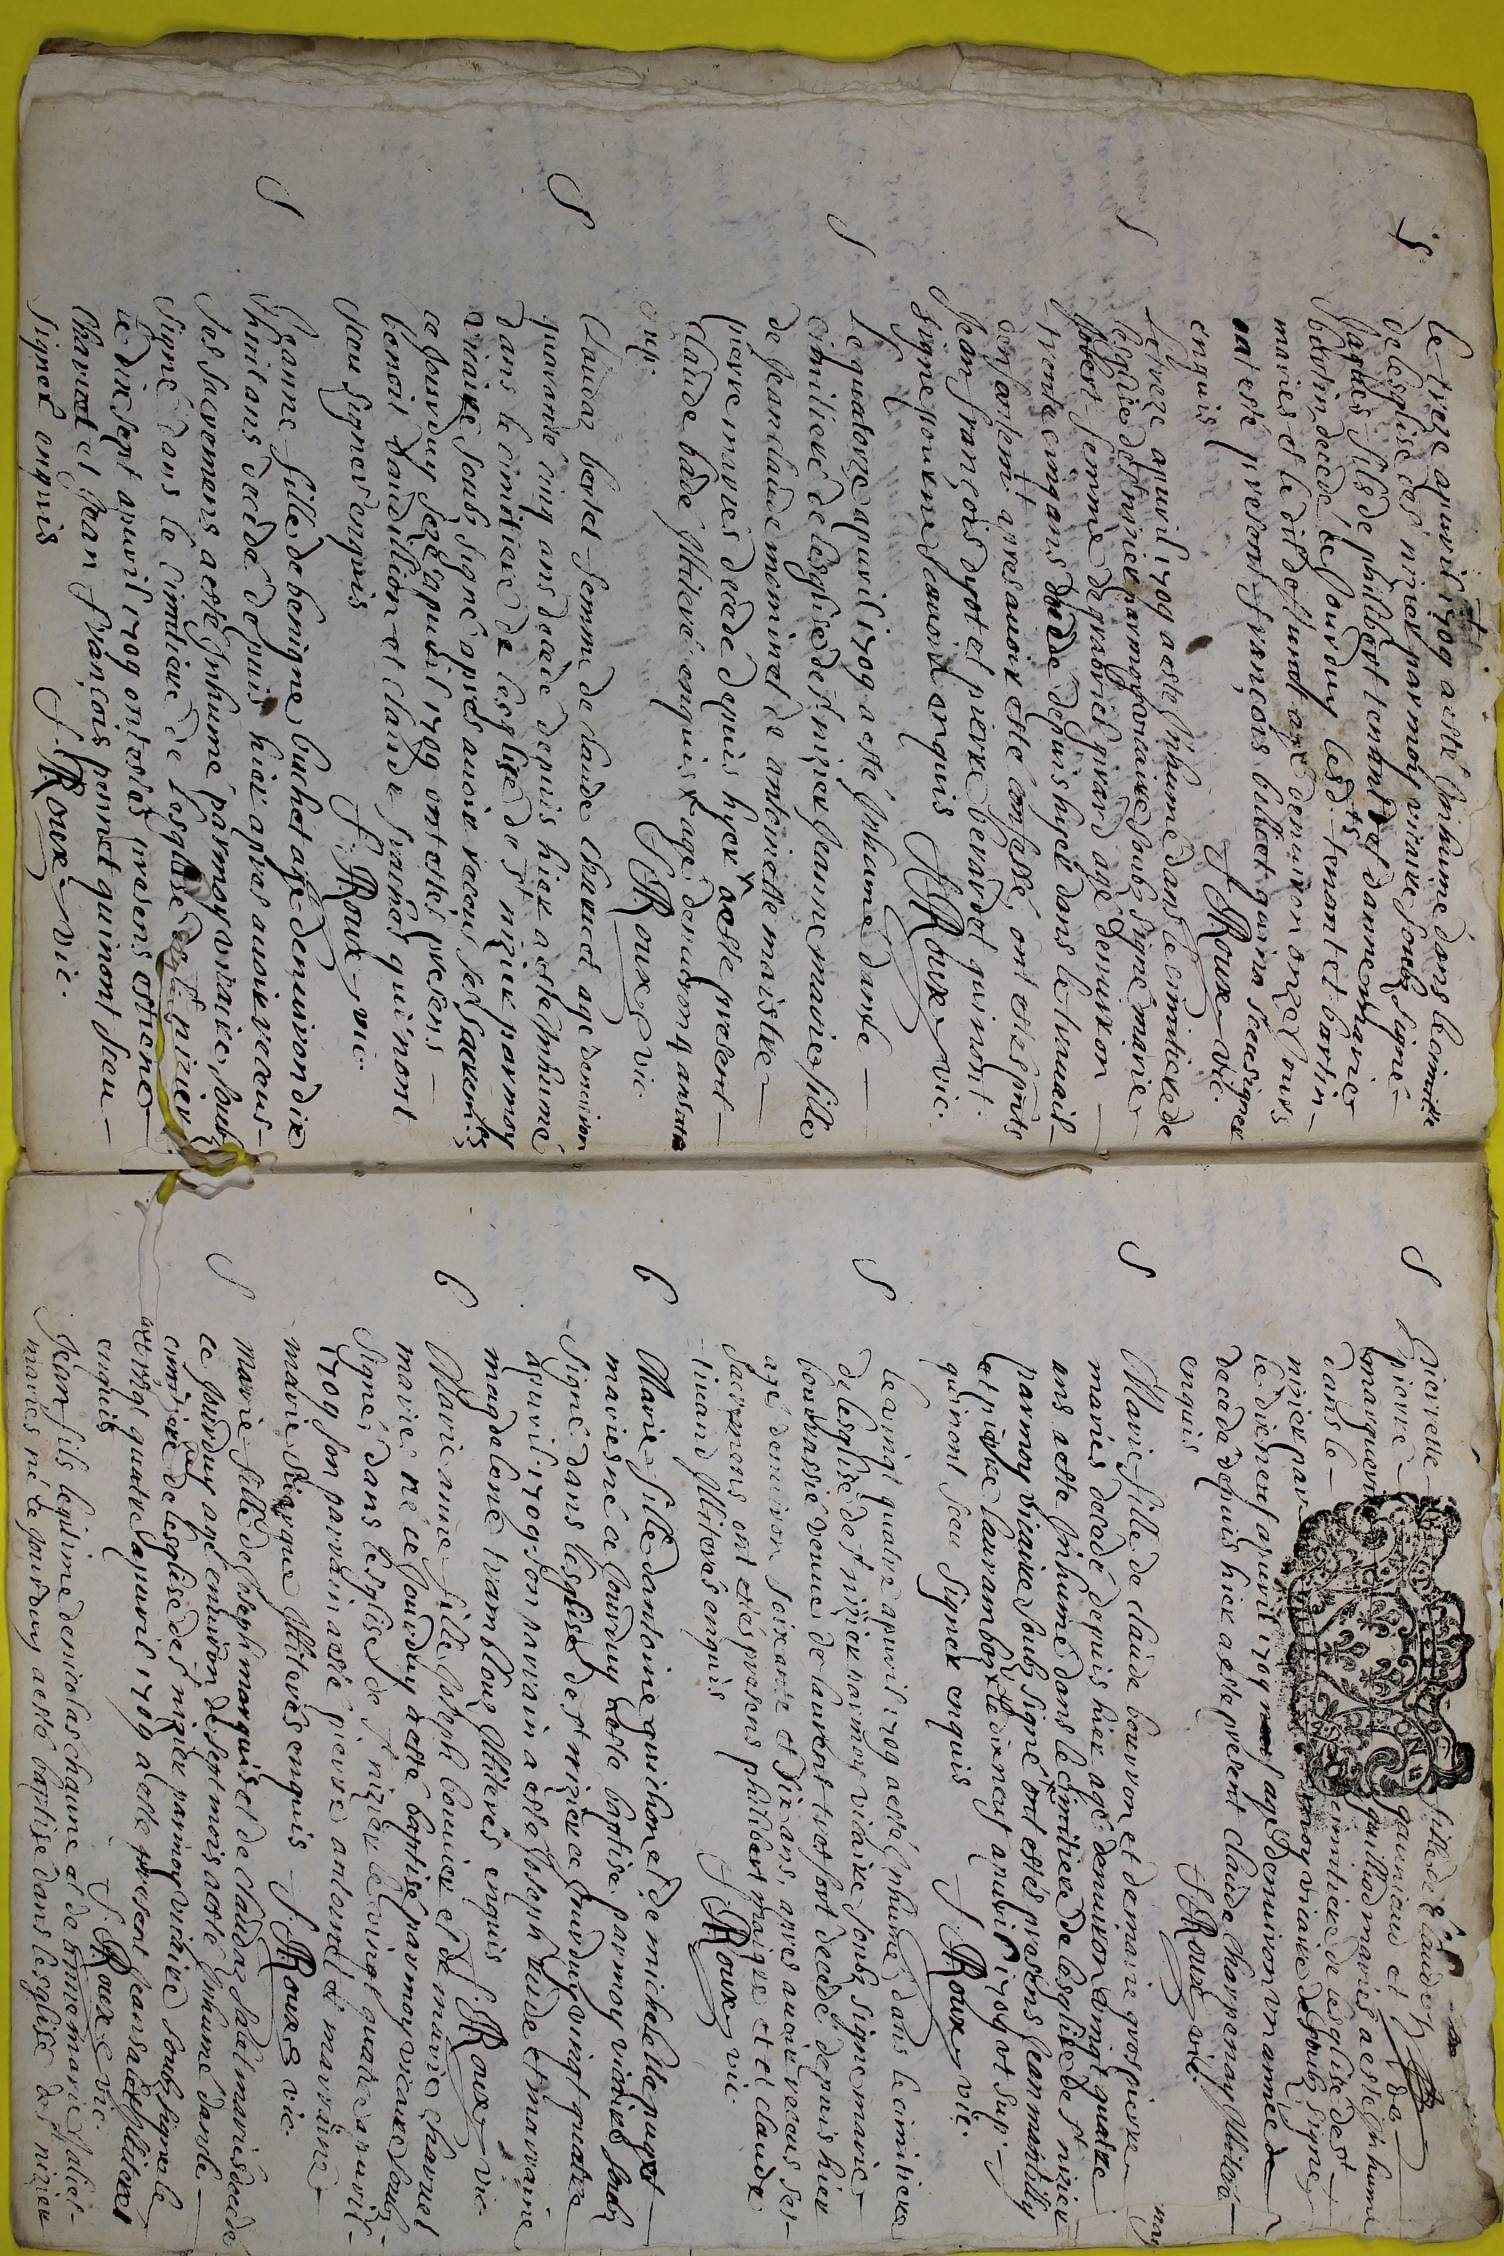 S
Le treze apuvril 1709 a esté Inhumé dans le cimitiere
de lesglise de st nizier par moy vicaire soubz signé
Jaques fils de philibert tenant et danne marie
bartin decedé ce Jourduy lesdts tenant et bartin
mariés et ledit deffunct agé denuiron onze Jours
a esté present françois bullet qui na sceu signer
enquis
J. Roux vic.
S
Le treze apuvril 1709 a esté Inhumé dans le cimitiere de
lesglise de st nizier par moy vicaire soubz signé marie
femme de gabriel girard agé denuiron
trente cinq ans decedé depuis hyer dans le trauail
denfantemt apres auoir esté confessé, ont estés pnts
Jean françois dyot et pierre berardet qui nont
signé pour ne scauoir enquis J. Roux vic.
S
Le quatorze apuvril 1709 a esté Inhumé dans le
cimitiere de lesglise de st nizier Jeanne marie fille
de Jean claude mominet et de antoinette maistre
pierre mariés decedé depuis hyer a esté present
claude bade Illiteré enquis agé denuiron 4 ans
J. Roux vic.
S
Claudaz bertet femme de claude chanuet agé denuiron
quarante cinq ans decedé depuis hier a esté Inhumé
dans le cimitiere de lesglise de st nizier par moy
vicaire soubz signé apres auoir receus ses sacremts
ce Jourduy sezé apuvril 1709 ont estés presens
benoit baudillion et claude francoi qui nont
sceu signer enquis
J. Roux vic.
S
Jeanne fille de benigne buchet agé denuiron dix
huit ans decedé depuis hier apres auoir receus
ses sacremens a esté Inhumé par moy vicaire soub
signé dans le cimitiere de lesglise de st nizier
le dixsept apuvril 1709 ont estés presens estiene
chanuet et Jean françois perret qui nont sceu
signer enquis
J. Roux vic.
S
Pierrette fille de claude
pierre gaunieud et de
marguerite guilliod mariés a esté Inhumé
dans le cimitiere de lesglise de st
nizier par moy vicaire soubz signé
le dixneuf apuvril 1709 agé denuiron vn année
decedé depuis hier a esté present claude charpenay Illiteré
enquis
J. Roux vic.
S
Marie fille de claude bouruon et de marie gros pierre
mariés decedé depuis hier agé denuiron vingt quatre
ans a esté Inhumé dans le cimitiere de lesglise de st nizier
par moy vicaire soubz signé ont estés presens Jean montilly
et pierre le dixneuf apuvril 1709 et sup.
qui nont sceu signer enquis J. Roux vic.
S
Le vingt quatre apuvril 1709 a esté Inhumé dans le cimitiere
de lesglise de st nizier par moy vicaire soubz signé marie
veuue de laurent decedé depuis hier
agé denuiron soixante et dix ans, apres auoir receus ses
sacremens ont estés presens philibert maigre et et claude
Illiteres enquis
J. Roux vic.
b
Marie fille dantoine guichon et de michelette puget
mariés né ce Jourduy a esté baptisé par moy vicaire soubz
signé dans lesglise de st nizier ce Jourduy vingt quatre
apuvril 1709. son parrain a esté Joseph rude et marraine
magdelene tramblois Illiterés enquis
J. Roux vic.
b
Marie anne fille Joseph bouuier et de marie charuet
mariés né ce Jourduy a esté baptisé par moy vicaire soubz
signé, dans lesglise de st nizier le vingt quatre apuvril
1709 son parrain a esté pierre antoinet et marraine
marie Illiterés enquis J. Roux vic.
S
Marie fille de Joseph marquis et de claudaz salet mariés decedé
ce Jourduy agé enuiron de sept mois a esté Inhumé dans le
cimitiere de lesglise de st nizier par moy vicaire soubz signé le
vingt quatre apuvril 1709 a esté present Jean Illiteré
enquis J. Roux vic.
Jean fils legitime de nicolas chaune et de marie Jalliet
mariés né ce Jourduy a esté baptisé dans lesglise de st nizier